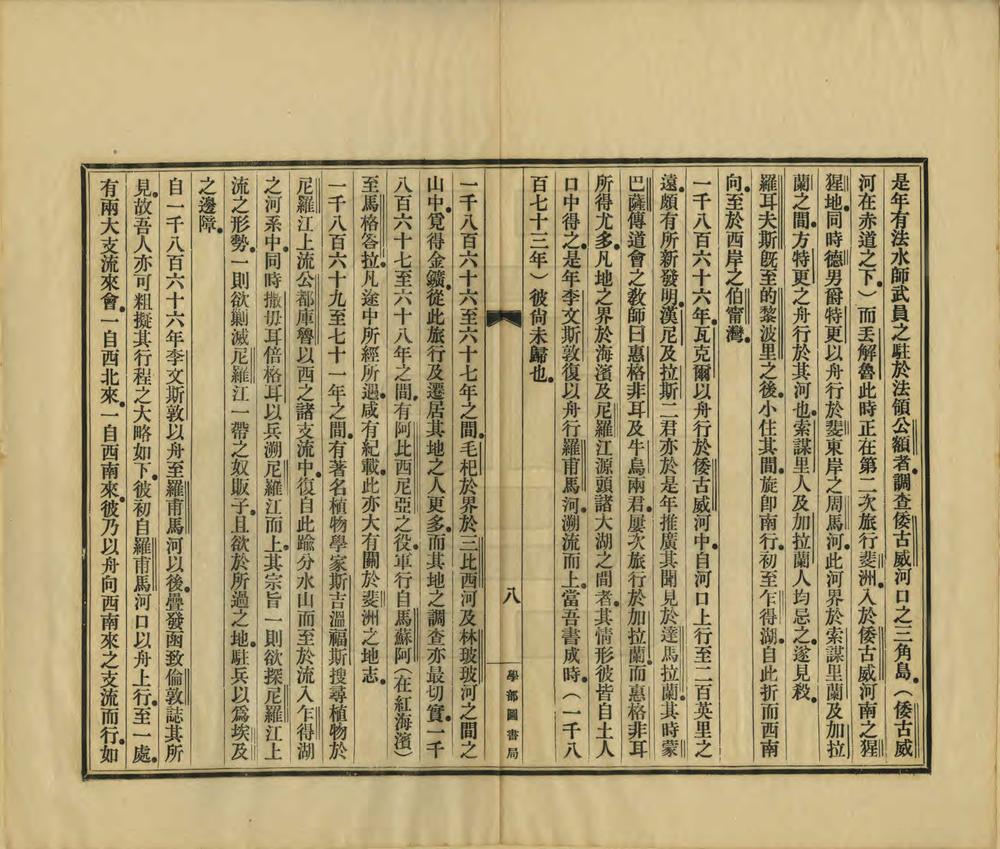 是年有法水師武員之駐於法領公額者調查倭古威河口之三角島。（倭古威
河在赤道之下。）而丟解魯此時正在第二次旅行斐洲。入於倭古威河南之猩
猩地。同時德男爵特更以舟行於斐東岸之周馬河。此河界於索謀里蘭及加拉
蘭之間。方特更之舟行於其河也。索謀里人及加拉蘭人均忌之。遂見殺。
羅耳夫斯旣至的黎波里之後。小住其間。旋卽南行。初至乍得湖。自此折而西南
向。至於西岸之伯甯灣。
一千八百六十六年。瓦克爾以舟行於倭古威河中。自河口上行至二百英里之
遠。頗有所新發明。漢尼及拉斯二君亦於是年推廣其聞見於達馬拉蘭。其時蒙
巴薩傳道會之敎師曰惠格非耳及牛鳥兩君。屢次旅行於加拉蘭。而惠格非耳
所得尤多。凡地之界於海濱及尼羅江源頭諸大湖之間者。其情形彼皆自土人
口中得之。是年李文斯敦復以舟行羅甫馬河。溯流而上。當吾書成時。（一千八
百七十三年）彼尙未歸也。
一千八百六十六至六十七年之間。毛杷於界於三比西河及林玻玻河之間之
山中。覓得金鑛。從此旅行及遷居其地之人更多。而其地之調查亦最切實。一千
八百六十七至六十八年之間。有阿比西尼亞之役。軍行自馬蘇阿（在紅海濱）
至馬格咨拉。凡途中所經所過。咸有紀載。此亦大有關於斐洲之地志。
一千八百六十九至七十一年之間。有著名植物學家斯吉溫福斯。搜尋植物於
尼羅江上流公都庫魯以西之諸支流中。復自此踰分水山而至於流入乍得湖
之河系中。同時撒毋耳倍格耳以兵溯尼羅江而上。其宗旨一則欲探尼羅江上
流之形勢。一則欲剿滅尼羅江一帶之奴販子。且欲於所過之地。駐兵以爲埃及
之邊障。
自一千八百六十六年李文斯敦以舟至羅甫馬河以後。疊發函致倫敦誌其所
見。故吾人亦可粗擬其行程之大略如下。彼初自羅甫馬河口以舟上行。至一處。
有兩大支流來會。一自西北來。一自西南來。彼乃以舟向西南來之支流而行。如
八
學部圖書局